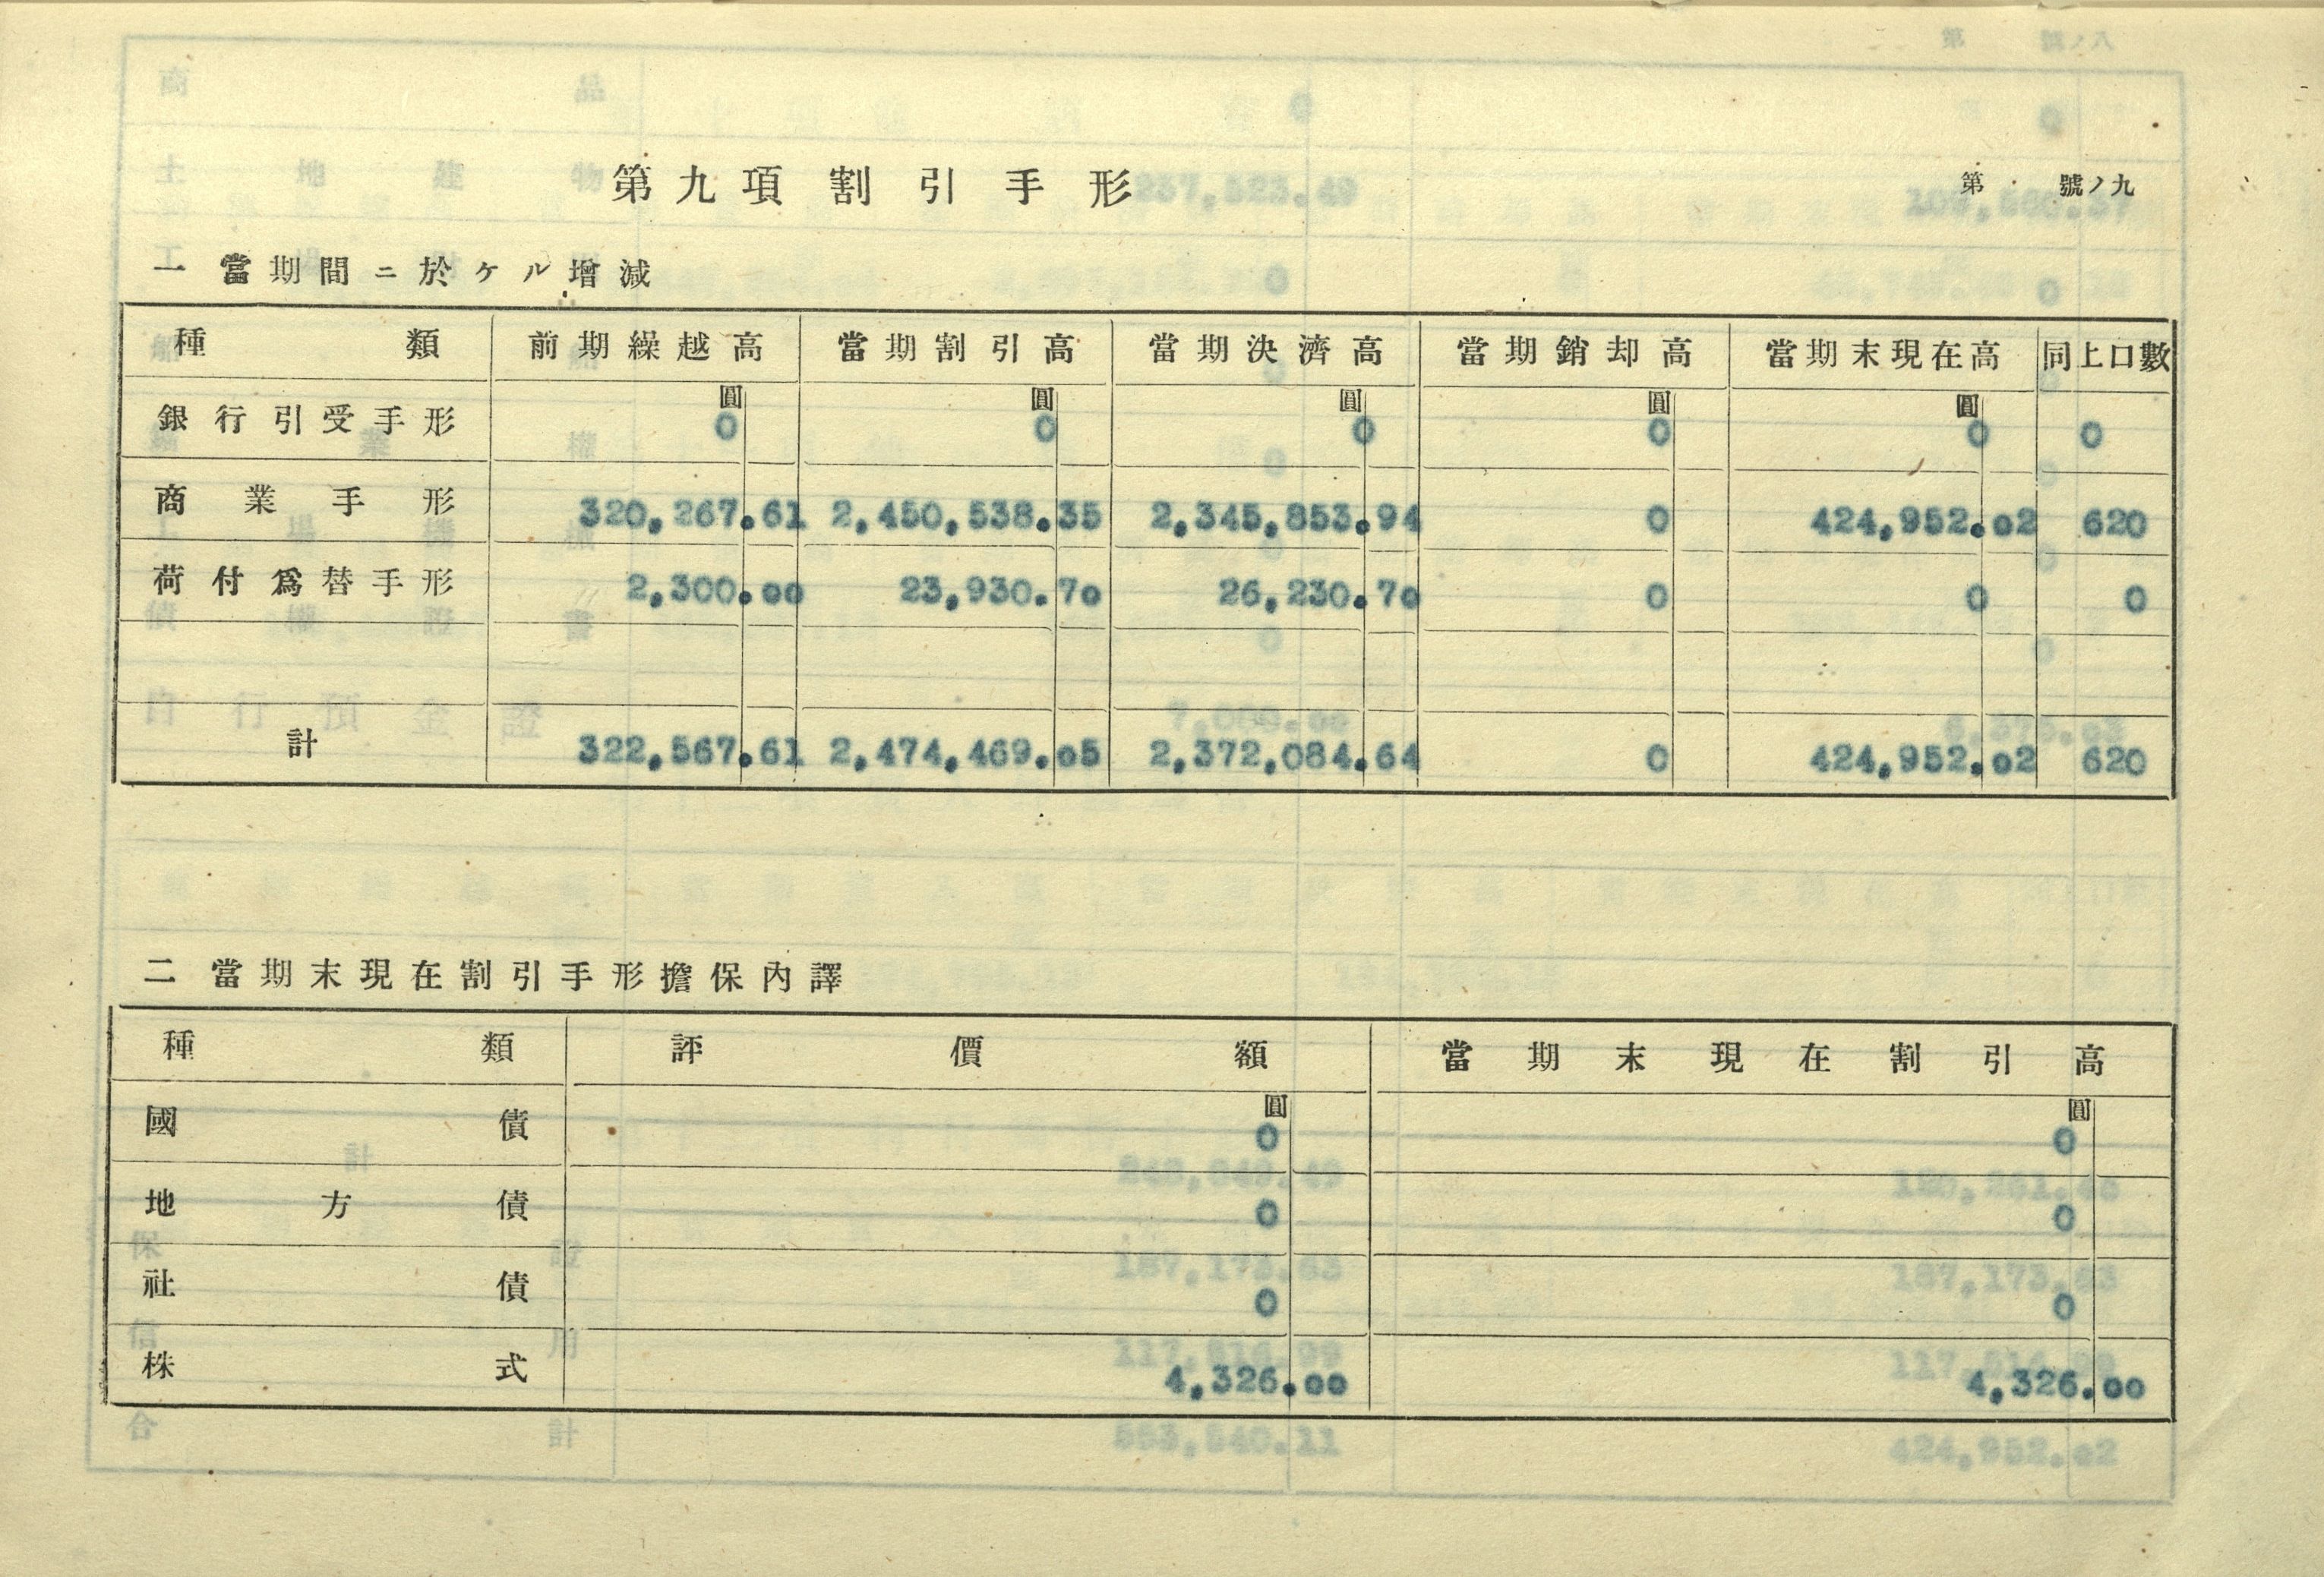 第九項 割引手形
第 號ノ九
一 當期間ニ於ケル增減
種類 前期繰越高 當期割引高 當期決濟高 當期銷却高 當期末現在高 同上口數
圓 圓 圓 圓 圓
銀行引受手形 0 0 0 0 0 0
商業手形 320,267.61 2,450,538.35 2,345,853.94 0 424,952.02 620
荷付爲替手形 2,300.00 23,930.70 26,230.70 0 0 0
計 322,567.61 2,474,469.05 2,372,084.64 0 424,952.02 620
二 當期末現在割引手形擔保內譯
種類 評價額 當期末現在割引高
圓 圓
國債 0 0
地方債 0 0
社債 0 0
株式 4,326.00 4,326.00